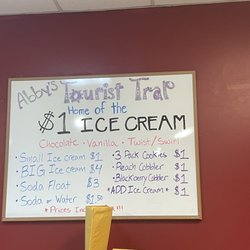 Abby's Tourist Trap
Home of the
$1 ICE CREAM
Chocolate · Vanilla · Twist/Swirl
• Small Ice cream $1
• BIG Ice cream $4
• Soda Float $3
• Soda or Water $1.50
• 3 Pack Cookies $1
• Peach Cobbler $1
• Blackberry Cobbler $1
*ADD Ice Cream* $1
*Prices